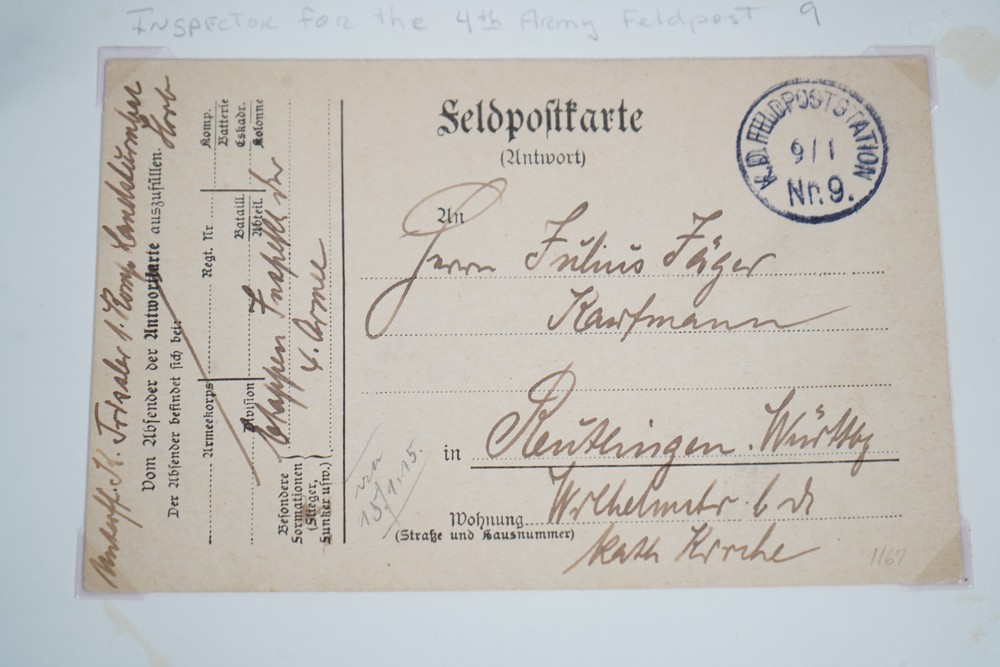 INSPECTOR FOR the 4th Army Feldpost 9
Feldpostkarte
(Antwort)
K.D. FELDPOSTSTATION
9/1
Nr. 9.
An
Herrn Julius Jäger
Kaufmann
in Reutlingen. Württbg
Wohnung Wilhelmstr. b d
(Straße und Hausnummer)
kath Kirche
1167
Unteroff. K. 1. Komp. Landsturmbat
Horb
Vom Absender der Antwortkarte auszufüllen.
Der Absender befindet sich bei:
Armeekorps
Regt. Nr
Komp.
Batterie
Division
Bataill.
Abteil.
Eskadr.
Kolonne
Etappen Inspekt der
4. Armee
Besondere
Formationen
(Flieger,
Funker usw.)
von
15/1.15.